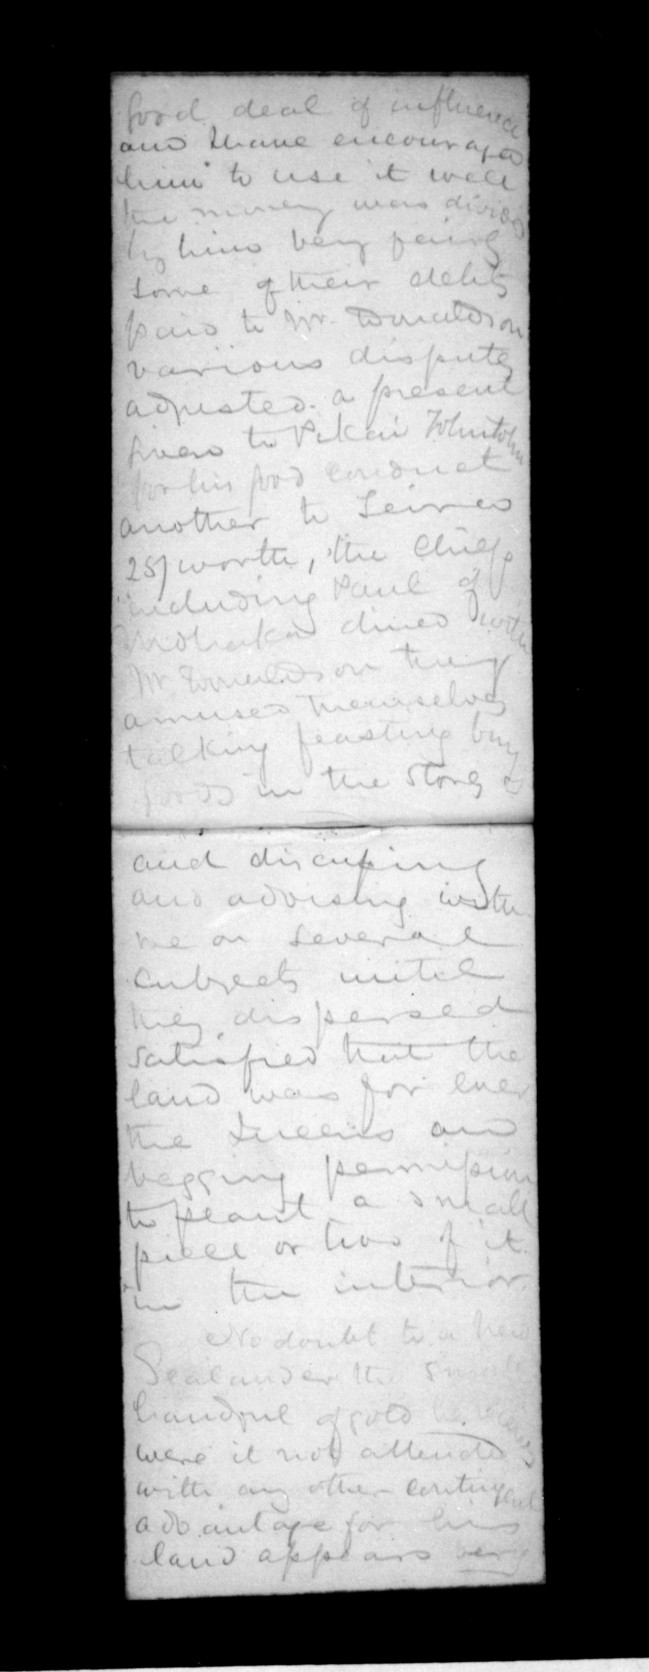 good deal of influence
and I have encouraged
him to use it well
the money was divided
by him very fairly
some of their debts
paid to Mr. Donaldson
various disputes
adjusted. a present
given to Pikai
for his good conduct
another to
25/ worth, the Chiefs
including Paul of
dined with
Mr Donaldson they
amused themselves
talking feasting buy
goods in the stores
and discussing
and advising with
me on several
subjects until
they dispersed
satisfied that the
land was for ever
the Queens and
begging permission
to plant a small
piece or two of it
in the interior.
No doubt to a New
Zealander the
handful of gold he
were it not attended
with any other contingent
advantage for his
land appears very